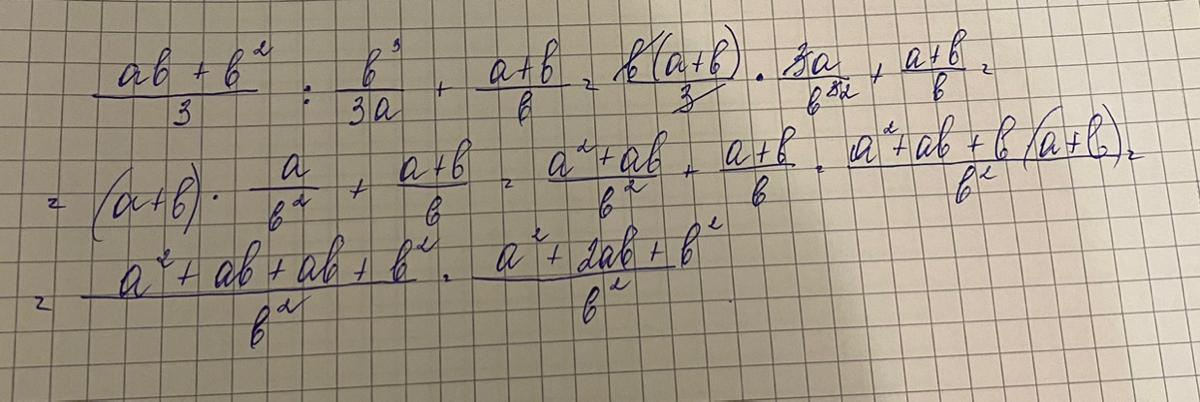 (ab + b²)/3 : b³/(3a) + (a+b)/b = b(a+b)/3 · 3a/b³² + (a+b)/b =
= (a+b) · a/b² + (a+b)/b = (a²+ab)/b² + (a+b)/b = (a²+ab+b(a+b))/b² =
= (a²+ab+ab+b²)/b² = (a²+2ab+b²)/b²